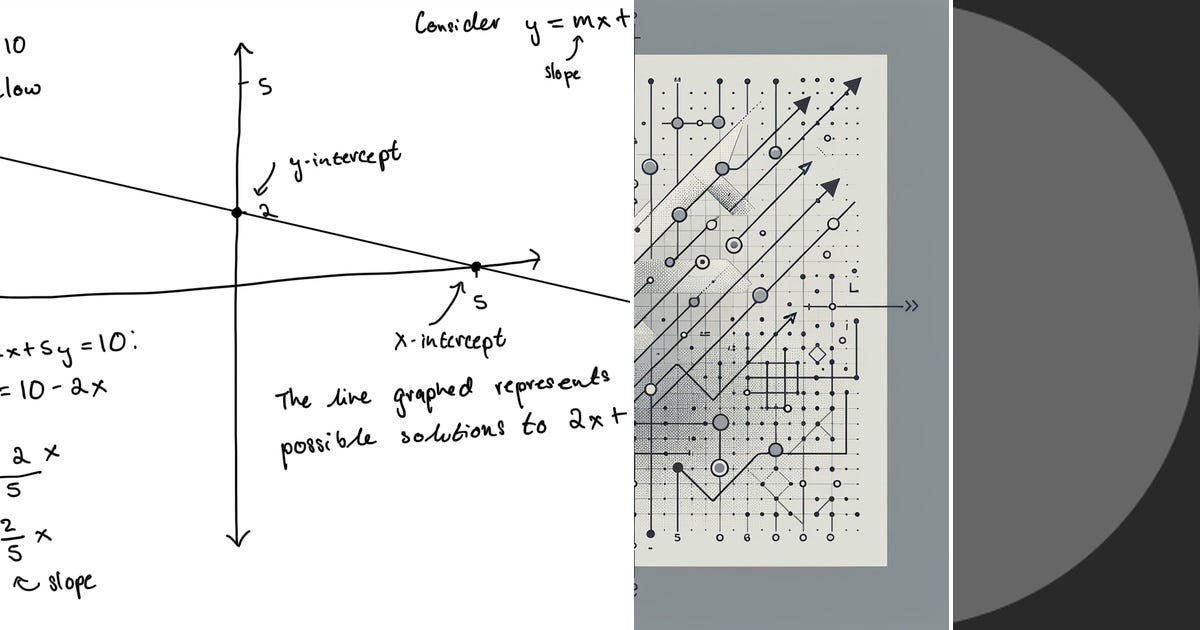 10
low
5
Consider y = mx+
slope
y-intercept
2
5
x-intercept
x+5y=10:
= 10-2x
2/5 x
2/5 x
slope
The line graphed represents
possible solutions to 2x+
5 0 6 0 0 0